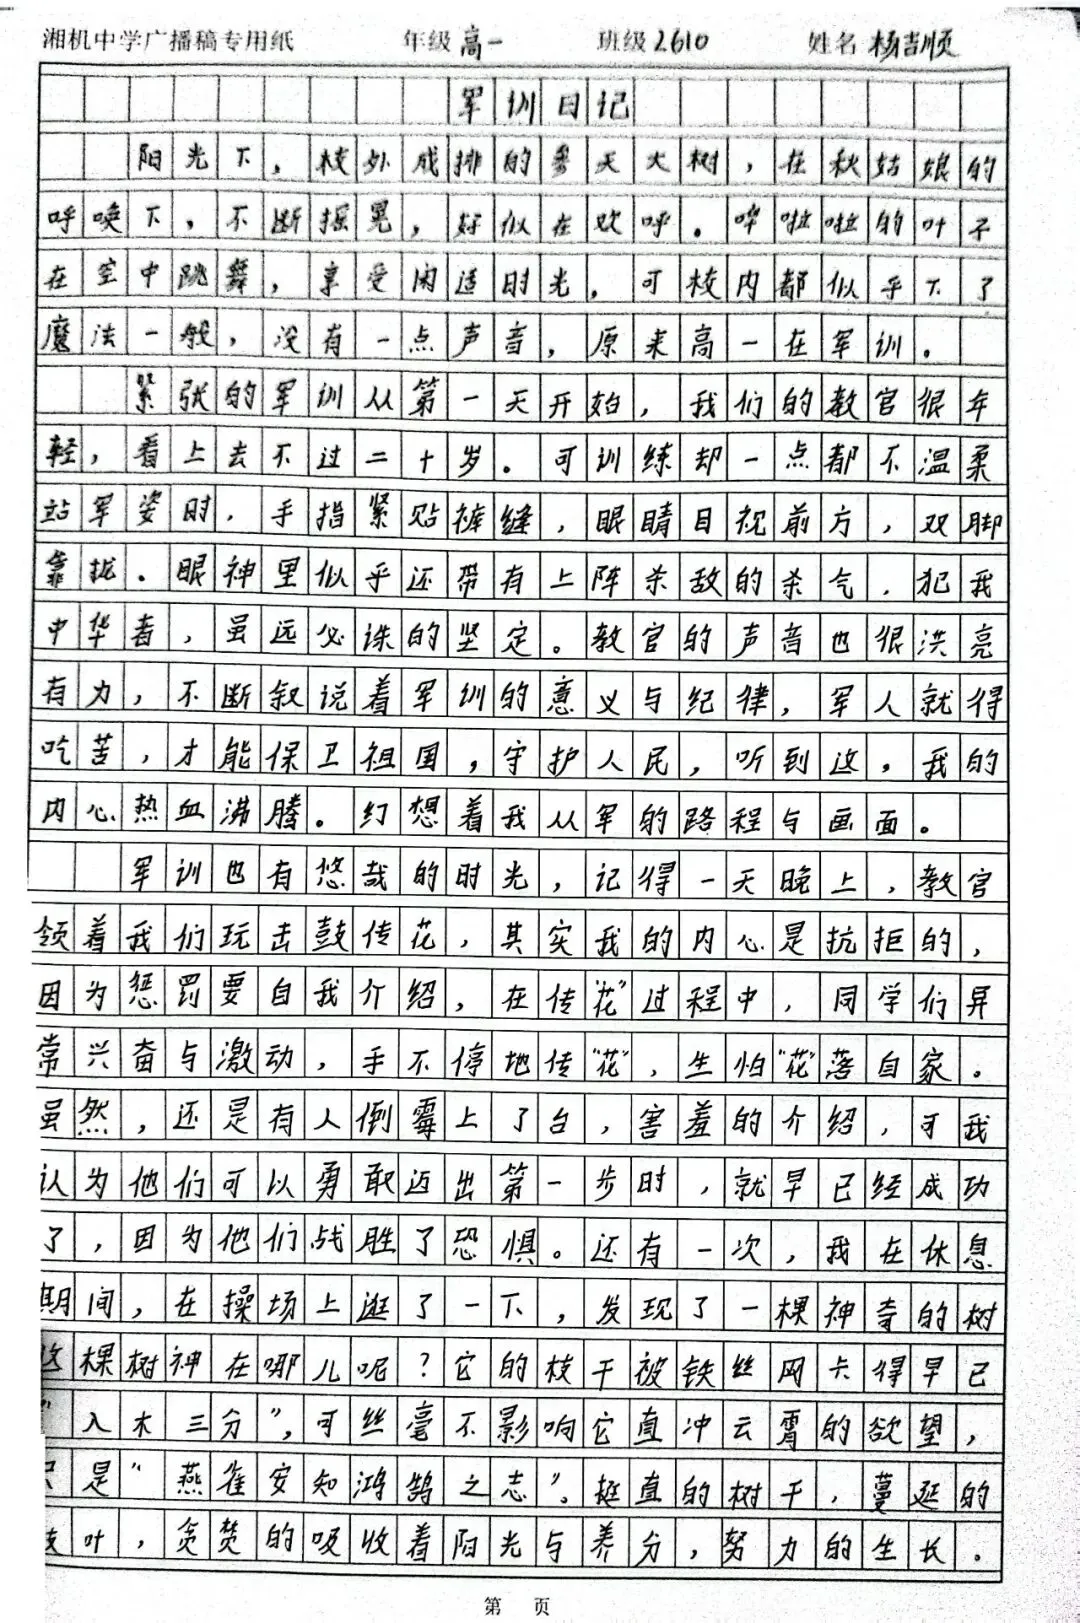 湘机中学广播稿专用纸 年级 高一 班级 2610 姓名 杨吉顺
军训日记
阳光下，校外成排的参天大树，在秋姑娘的
呼唤下，不断摇晃，好似在欢呼。哗啦啦的叶子
在空中跳舞，享受闲适时光，可校内都似乎下了
魔法一般，没有一点声音，原来高一在军训。
紧张的军训从第一天开始，我们的教官很年
轻，看上去不过二十岁。可训练却一点都不温柔
站军姿时，手指紧贴裤缝，眼睛目视前方，双脚
靠拢。眼神里似乎还带有上阵杀敌的杀气，犯我
中华者，虽远必诛的坚定。教官的声音也很洪亮
有力，不断叙说着军训的意义与纪律，军人就得
吃苦，才能保卫祖国，守护人民，听到这，我的
内心热血沸腾。幻想着我从军的路程与画面。
军训也有悠哉的时光，记得一天晚上，教官
领着我们玩击鼓传花，其实我的内心是抗拒的，
因为惩罚要自我介绍，在传“花”过程中，同学们异
常兴奋与激动，手不停地传“花”，生怕“花”落自家。
虽然，还是有人倒霉上了台，害羞的介绍，可我
认为他们可以勇敢迈出第一步时，就早已经成功
了，因为他们战胜了恐惧。还有一次，我在休息
期间，在操场上逛了一下，发现了一棵神奇的树
这棵树神在哪儿呢？它的枝干被铁丝网卡得早已
“入木三分”，可丝毫不影响它直冲云霄的欲望，
只是“燕雀安知鸿鹄之志”。挺直的树干，蔓延的
枝叶，贪婪的吸收着阳光与养分，努力的生长。
第 页